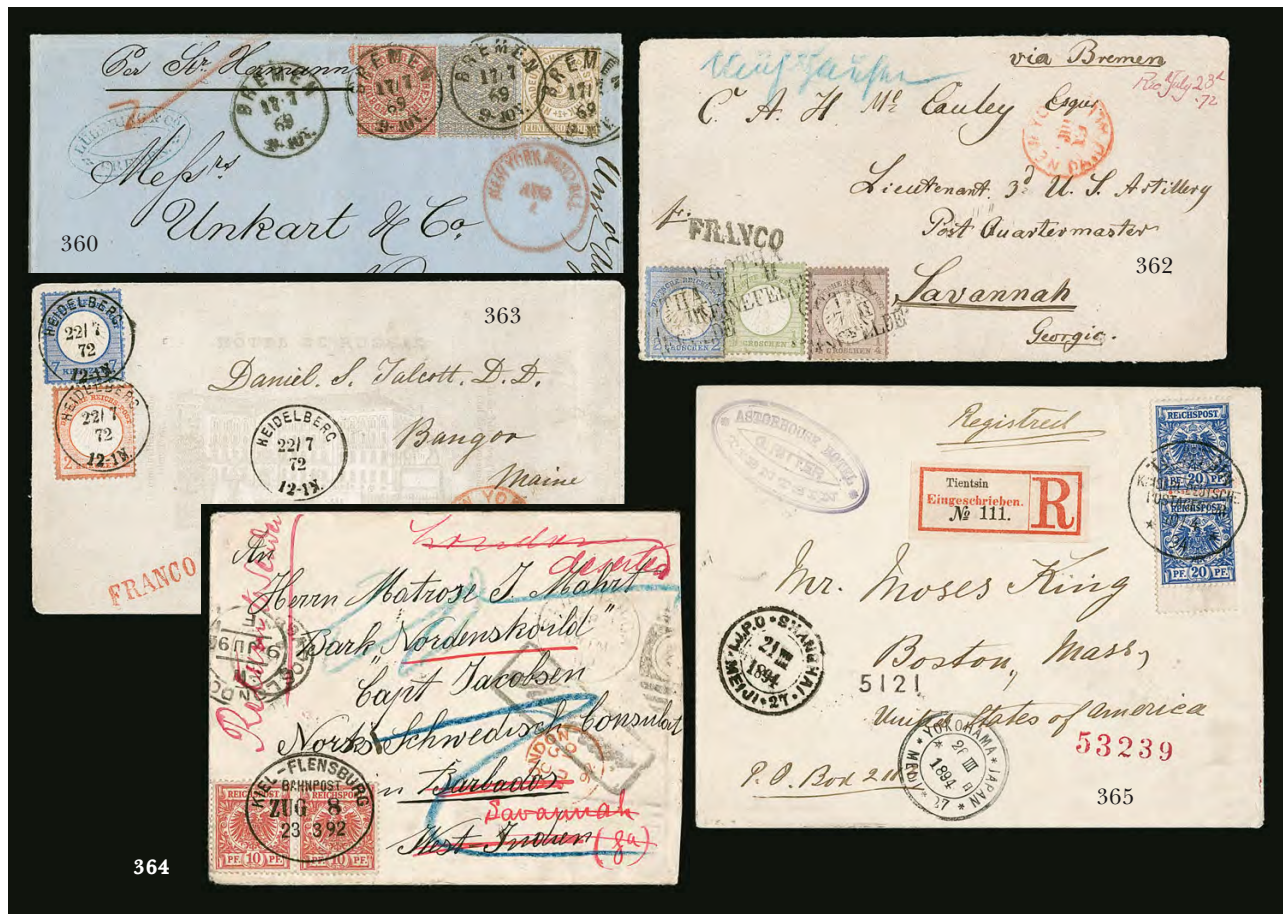 Per Str. Hamann
BREMEN
17 7
69
9-10V.
BREMEN
17/7
69
9-10V.
BREMEN
17.7
69
9-10V.
BREMEN
17/7
69
9-10V.
BREMEN
NEW YORK
AUG
Messrs
Unkart & Co.
360
via Bremen
Rec'd July 23d
72
C. A. H. McCauley Esqu
NEW YORK
Lieutenant 3d U. S. Artillery
Post Quartermaster
fr.
FRANCO
362
Savannah
Georgia.
GROSCHEN
GROSCHEN 4
HEIDELBERG
22/7
72
12-1N.
HEIDELBERG
22/7
72
12-1N.
363
Daniel. S. Talcott. D. D.
HEIDELBERG
22/7
72
12-1N.
Bangor
Maine
FRANCO
London
deserted
An
Herrn Matrose J. Mahrt
Bark "Nordenskoild"
Capt Jacobsen
Norks Schwedisch Consulat
Barbados
Savannah
West-Indien (ga)
KIEL-FLENSBURG
BAHNPOST
ZUG 8
23 3 92
REICHSPOST
PF. 10 PF.
REICHSPOST
PF. 10 PF.
364
ASTORHOUSE HOTEL
TIENTSIN
Registred
Tientsin
Eingeschrieben.
№ 111.
R
REICHSPOST
PF. 20 PF.
REICHSPOST
PF. 20 PF.
Mr. Moses King
Boston, Mass,
5121
United States of America
53239
P.O. Box 2
I.J.P.O SHANGHAI
21 III
1894
MEIJI 27
YOKOHAMA JAPAN
26 III
1894
MEIJI 27
365